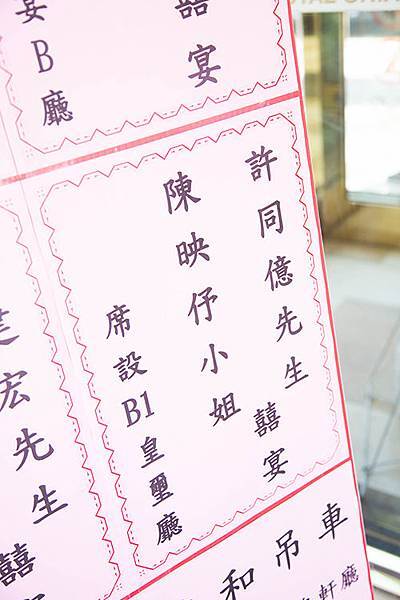 囍宴
宴B廳
許同億先生
陳映伃小姐
囍宴
席設B1皇璽廳
宏先生
囍
車吊和
軒廳